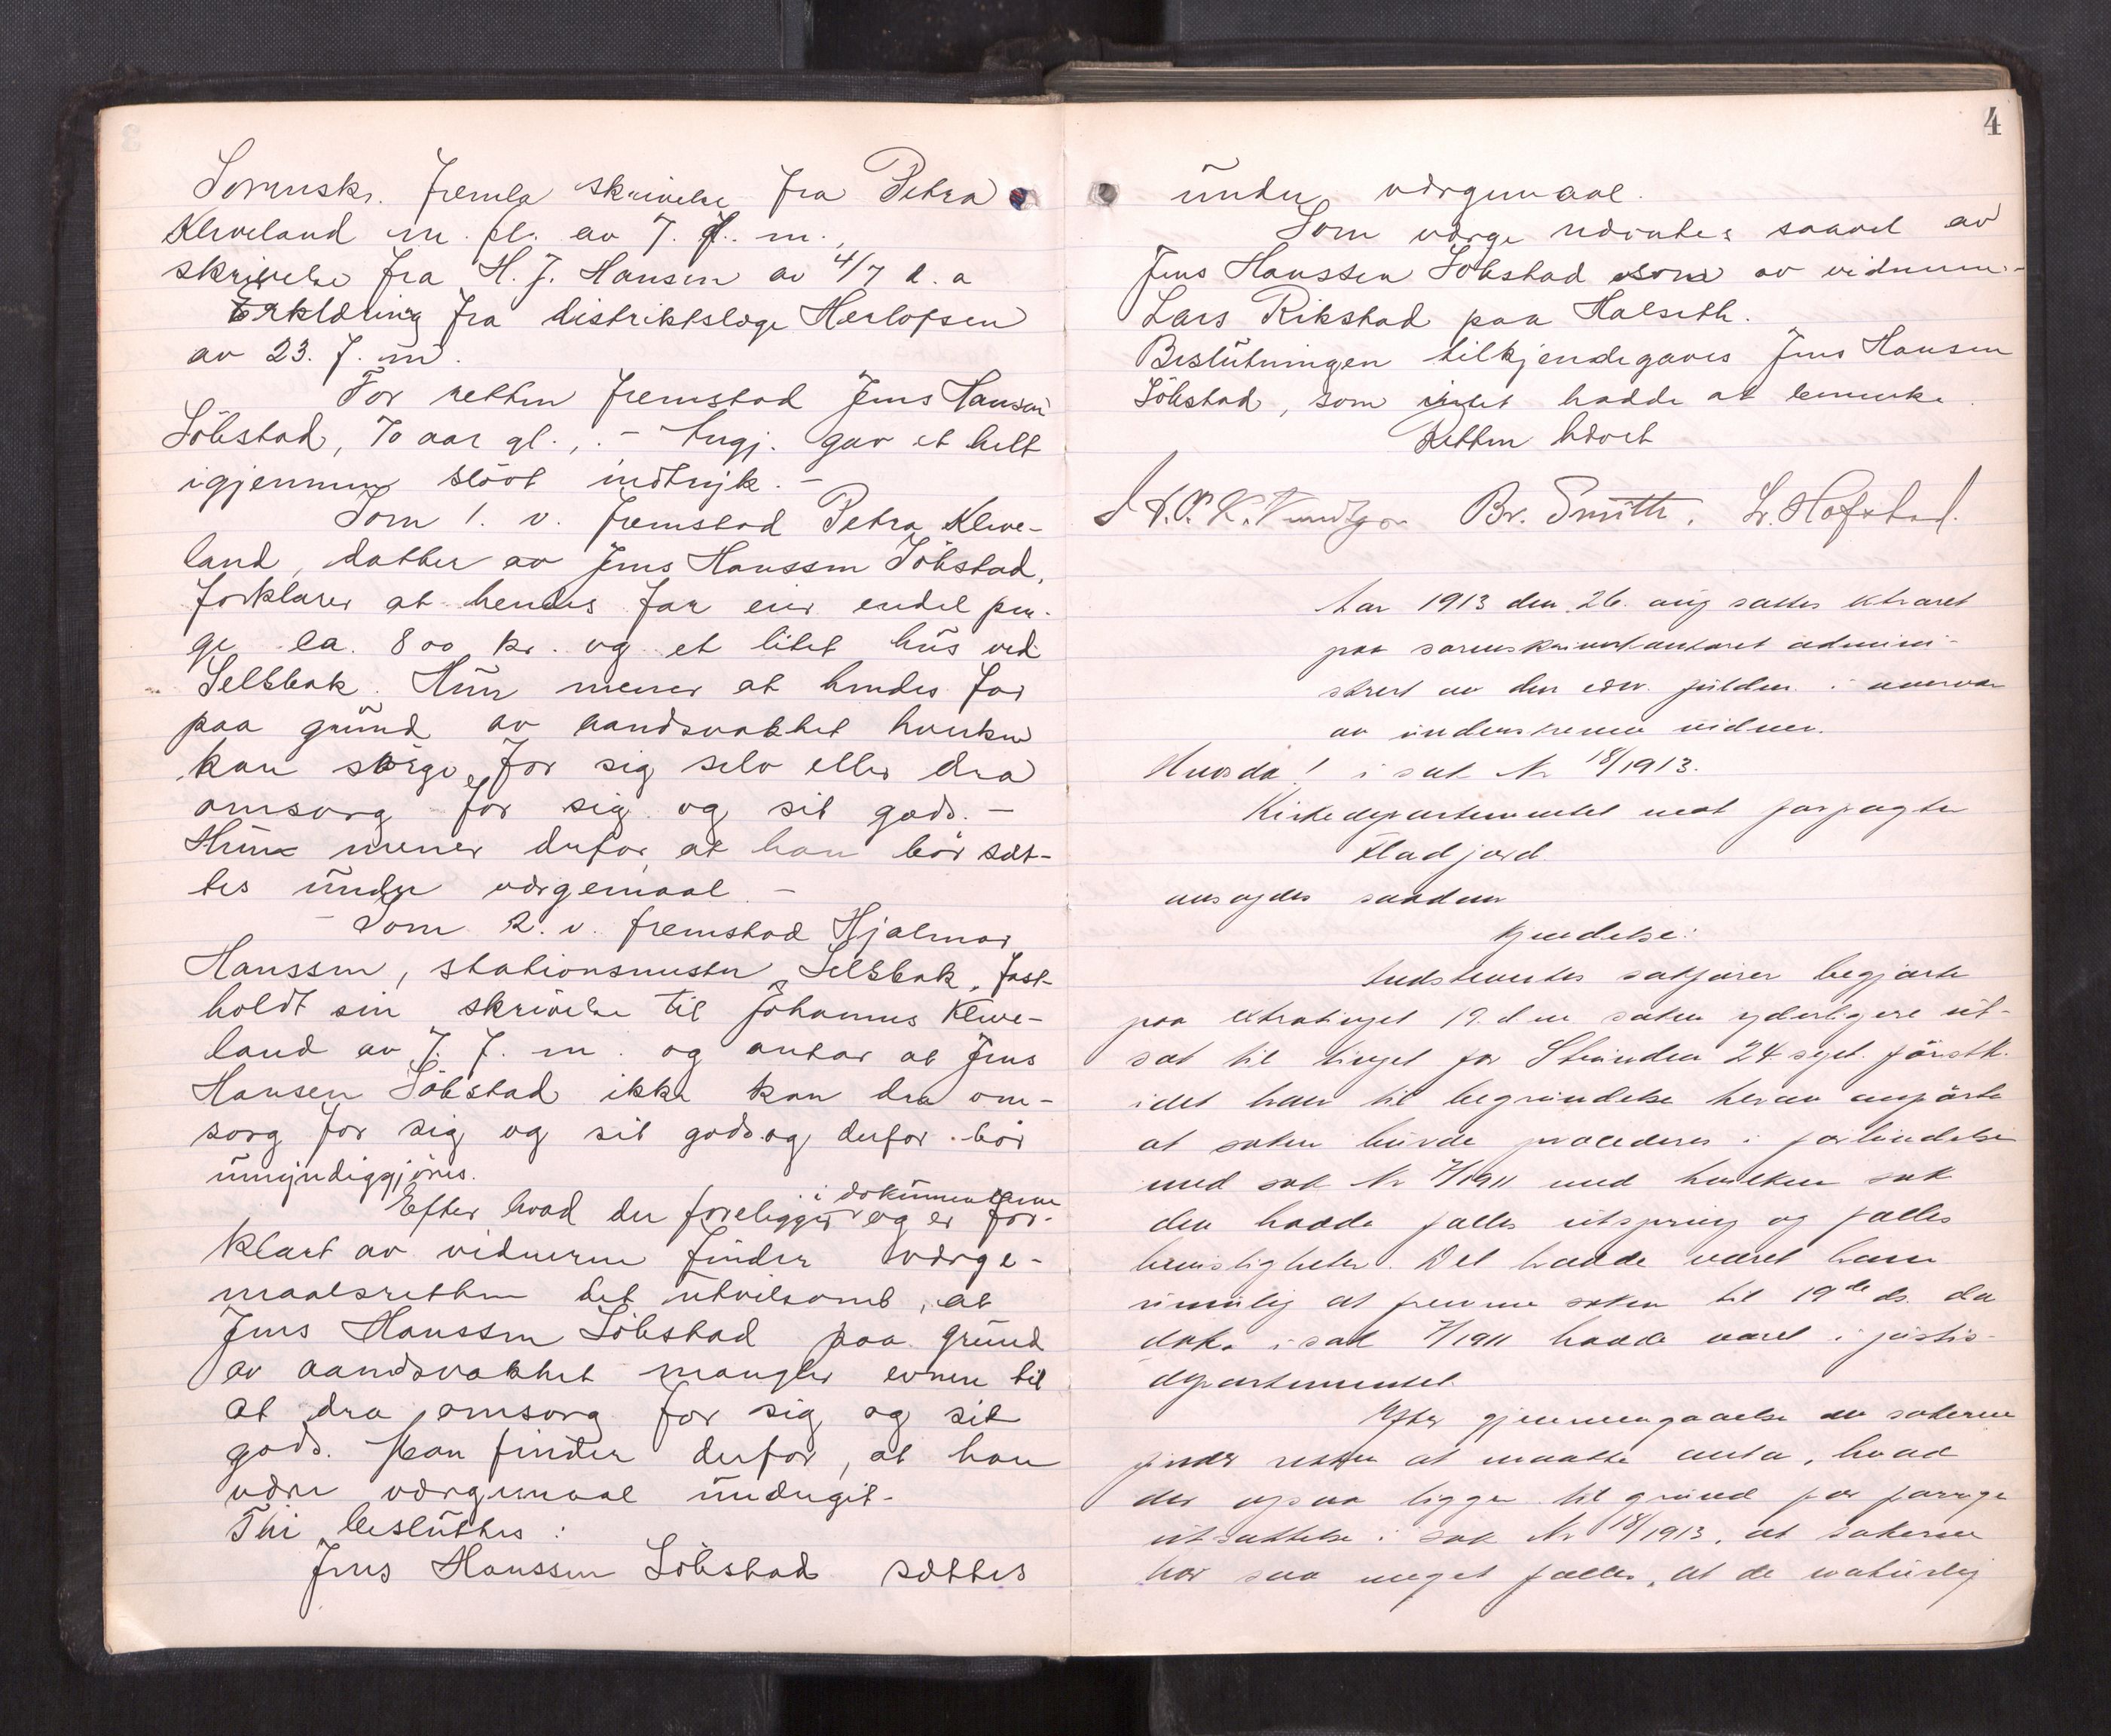 Sorenskr. fremla skrivelse fra Petra
Kleveland m. fl. av 7. f. m.,
skrivelse fra H. J. Hansen av 4/7 d. a
Erklæring fra distriktslæge Herlofsen
av 23. f. m.
For retten fremstod Jens Hansen
Söbstad, 70 aar gl., .- Angj. gav et helt
igjennem slövt indtryk. -
Som 1. v. fremstod Petra Kleve-
land, datter av Jens Hanssen Söbstad,
forklarer at hendes far eier endel pen-
ge ca. 800 kr. og et litet hus ved
Selsbak. Hun mener at hendes far
paa grund av aandsvakhet hverken
kan sörge for sig selv eller dra
omsorg for sig og sit gods. -
Hun mener derfor at han bör sæt-
tes under værgemaal. -
- Som 2. v. fremstod Hjalmar
Hanssen, stationsmester, Selsbak, fast-
holdt sin skrivelse til Johannes Kleve-
land av 7. f. m. og antar at Jens
Hansen Söbstad ikke kan dra om-
sorg for sig og sit gods og derfor bör
umyndiggjöres.
Efter hvad der foreligger i dokumenterne og er for-
klart av vidnerne finder værge-
maalsretten det utvilsomt, at
Jens Hanssen Söbstad paa grund
av aandsvakhet mangler evnen til
at dra omsorg for sig og sit
gods. Man finder derfor, at han
være værgemaal undergit.
Thi besluttes:
Jens Hanssen Söbstad sættes
4
under værgemaal.
Som værge nævntes saavel av
Jens Hanssen Söbstad som av vidnerne -
Lars Rikstad paa Halseth.
Beslutningen tilkjendegaves Jens Hansen
Söbstad, som intet hadde at bemerke.
Retten hævet
Br. Smith. L. Hofstad.
Aar 1913 den 26. aug sattes ekstraret
paa sorenskriverkontoret admini-
strert av den edsv. fuldm. i nærvær
av underskrevne vidner.
Hvorda! i sak Nr 18/1913.
Kirkedepartementet mot forpagter
Fladjord
avsagdes saadan
Kjendelse:
Indstevntes sakförer begjærte
paa ekstratinget 19. d m. saken yderligere ut-
sat til tinget for Strinden 24 sept. förstk.
idet han til begrundelse herav anförte
at saken burde procederes i forbindelse
med sak Nr 7/1911 med hvilken sak
den hadde fælles utspring og fælles
bevisligheter. Det hadde været ham
umulig at fremme saken til 19de ds. da
dok. i sak 7/1911 hadde været i justis-
departementet.
Efter gjennemgaaelse av sakerne
finder retten at maatte anta, hvad
der ogsaa ligger til grund for forrige
utsættelse i sak Nr 18/1913, at sakerne
har saa meget fælles, at de naturlig